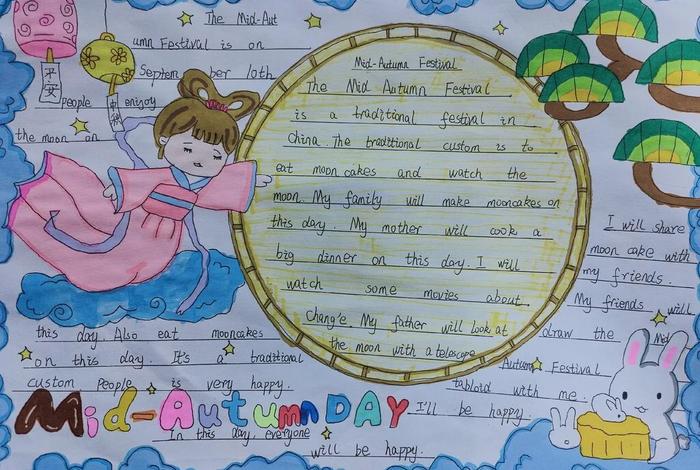 The Mid-Aut
umn Festival is on
Septem ber 10th
people enjoy
the moon on
平安
中秋
Mid-Autumn Festival
The Mid Autumn Festival
is a traditional festival in
China. The traditional custom is to
eat moon cakes and watch the
moon. My family will make mooncakes on
this day. My mother will cook a
big dinner on this day. I will
watch some movies about
Chang'e. My father will look at
the moon with a telescope
this day. Also eat mooncakes
on this day. It's a traditional
custom People is very happy.
I will share
moon cake with
my friends.
My friends will
draw the Mid
Autumn Festival
tabloid with me.
I'll be happy.
Mid-Autumn DAY
In this day, everyone
will be happy.